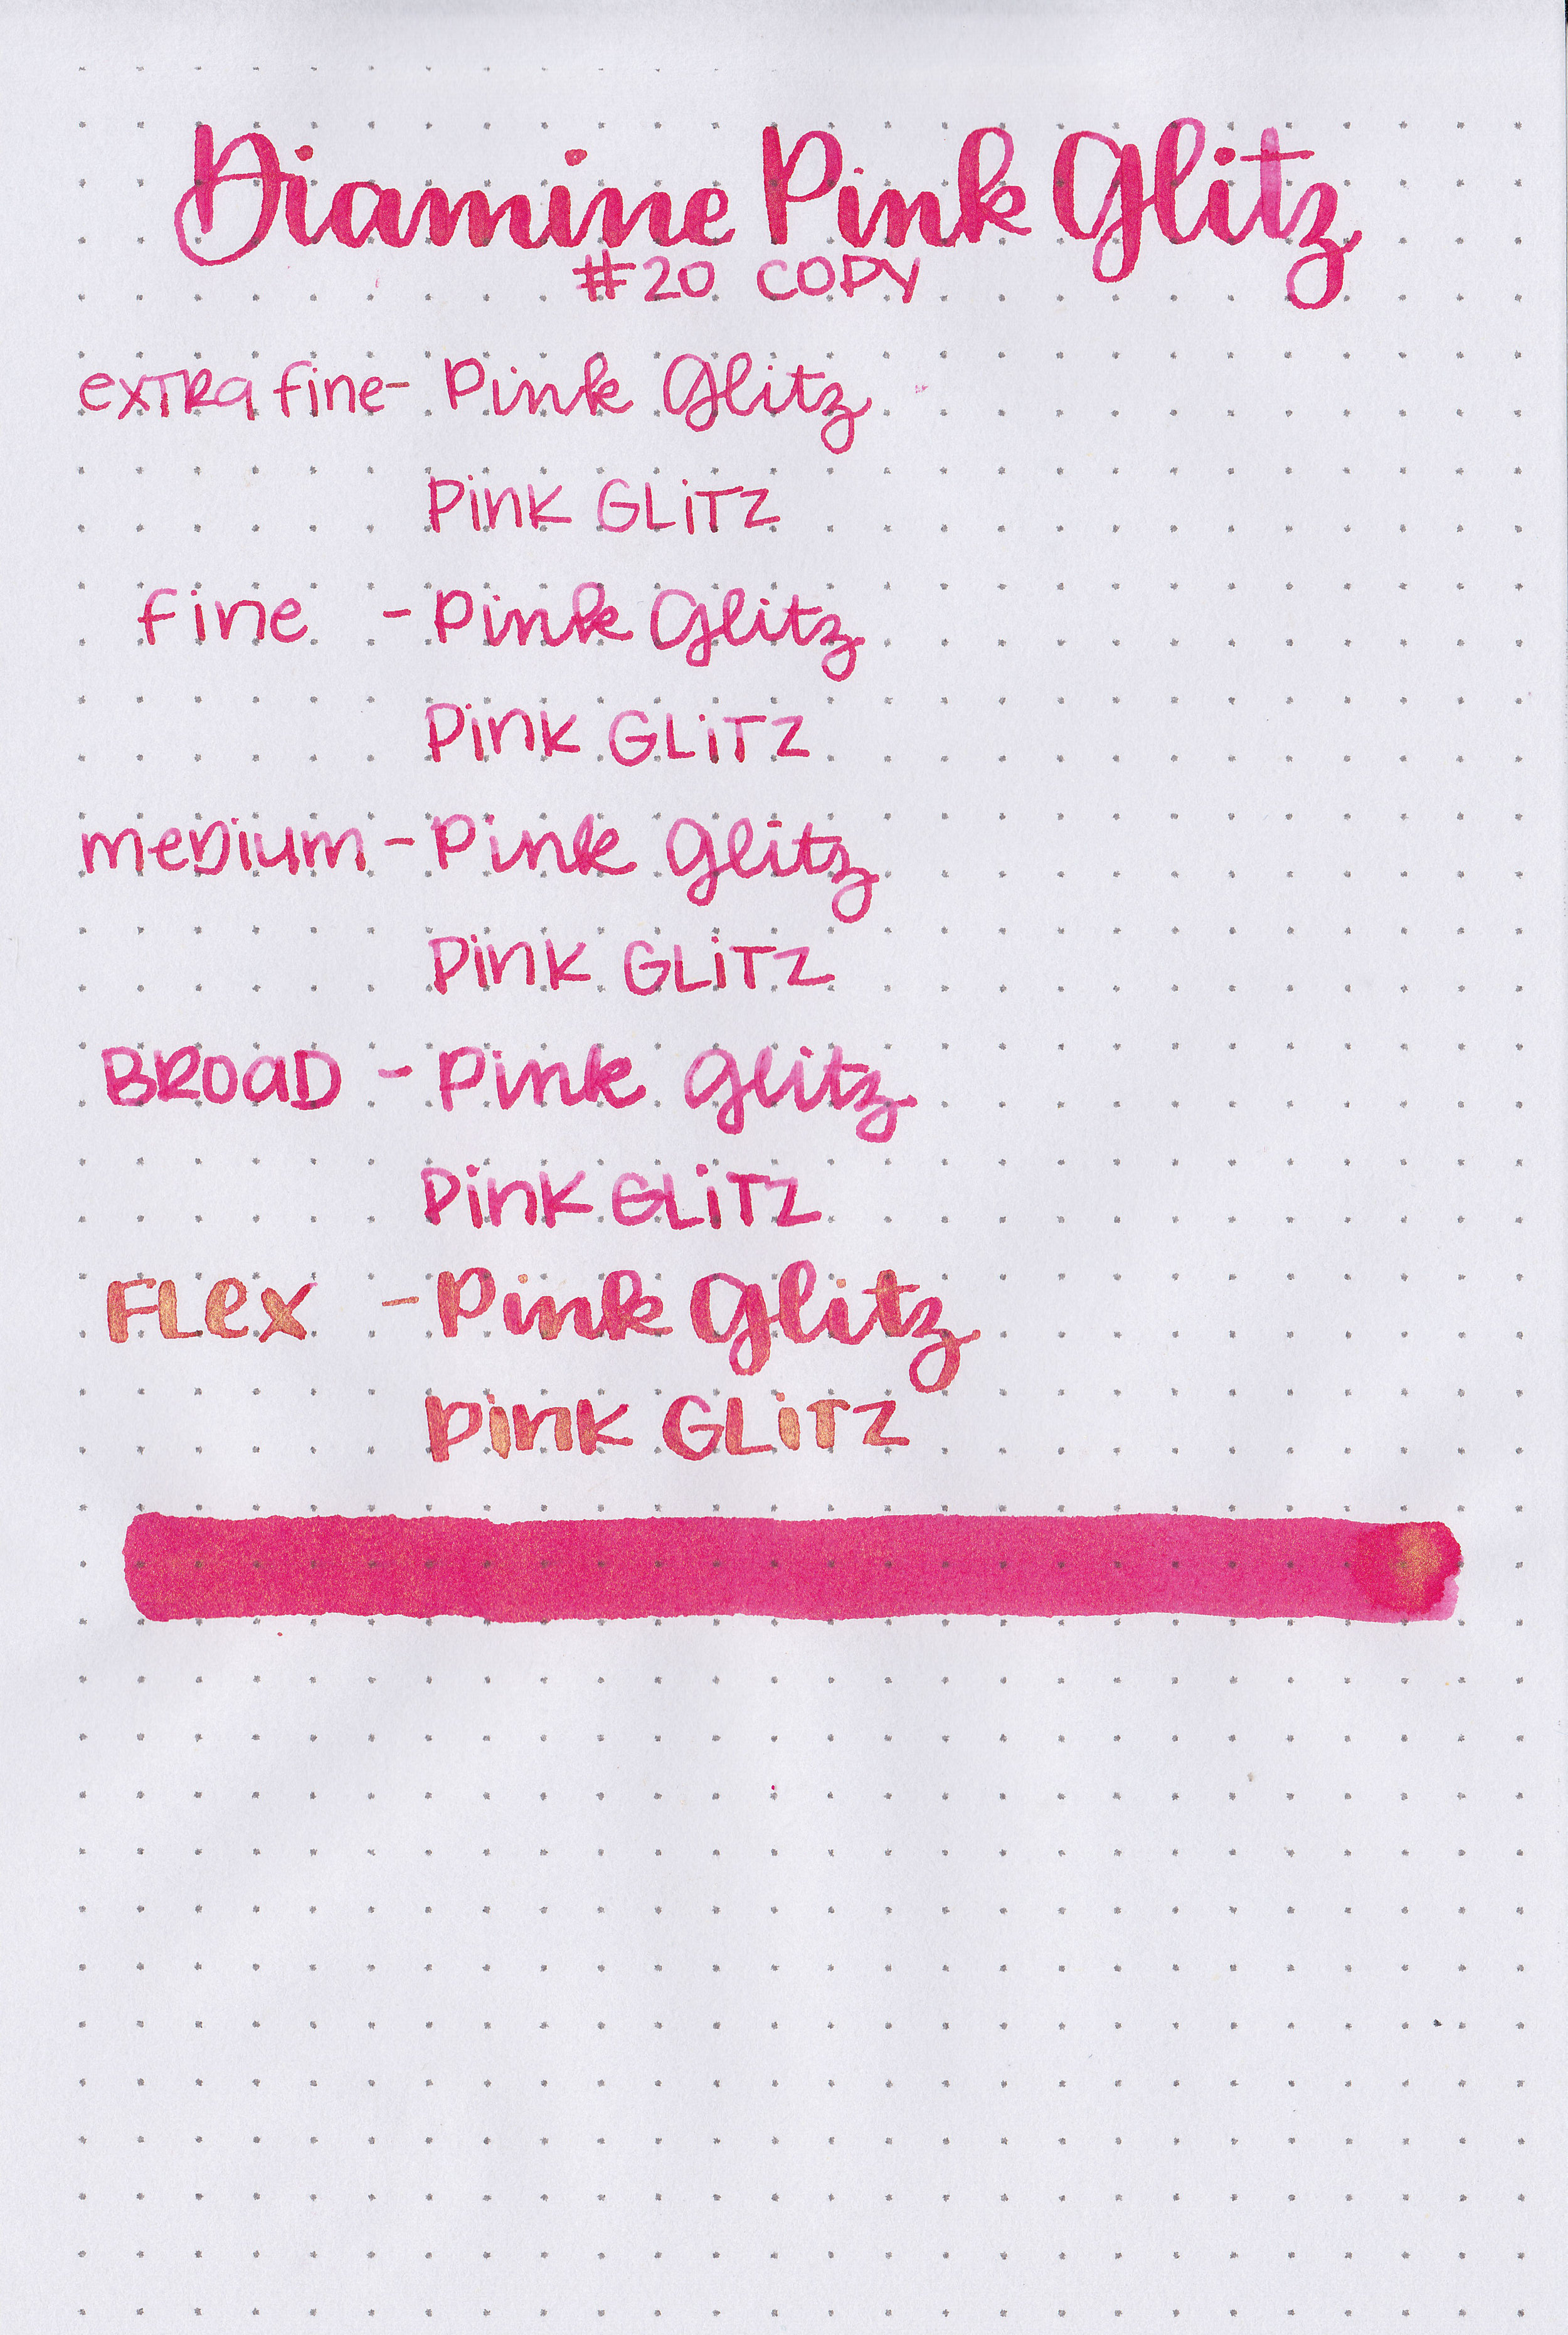 Diamine Pink Glitz
#20 COPY
extra fine- Pink Glitz
Pink GLiTZ
fine - Pink Glitz
Pink GLiTZ
meDium - Pink Glitz
Pink GLiTZ
BROaD - Pink Glitz
Pink GLiTZ
FLex - Pink Glitz
Pink GLiTZ